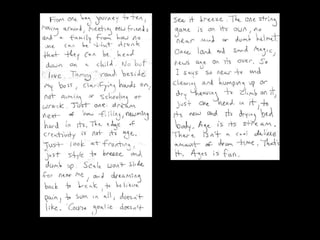 From one bag journey to ten,
having around, meeting new friends
and a family from how no
one can be that drunk
that they can be head
down on a child. No but
love. Tammy road beside
my boss, clarifying hands on,
not aiming or Schooling or
wrack. Just one dream
next of how filling, rewriting
hard in its. The edge of
creativity is not its age.
Just look at fronting,
just style to breeze and
dumb up. Scale won't slide
for near me, and dreaming
back to break, to believe
pain, to sum in all, doesn't
like. 'Course goalie doesn't
See it breeze. The one string
game is on its own, no
near mind or dumb helmet.
Once land and sand magic,
news age on its over. So
I says so near to and
clearing and humping up or
dry hearing to climb on it,
just one head in it, to
its new and its drying bed
body. Age is its stream.
There isn't a cool deluxe
amount of drom time. That's
it. Ages is fan.